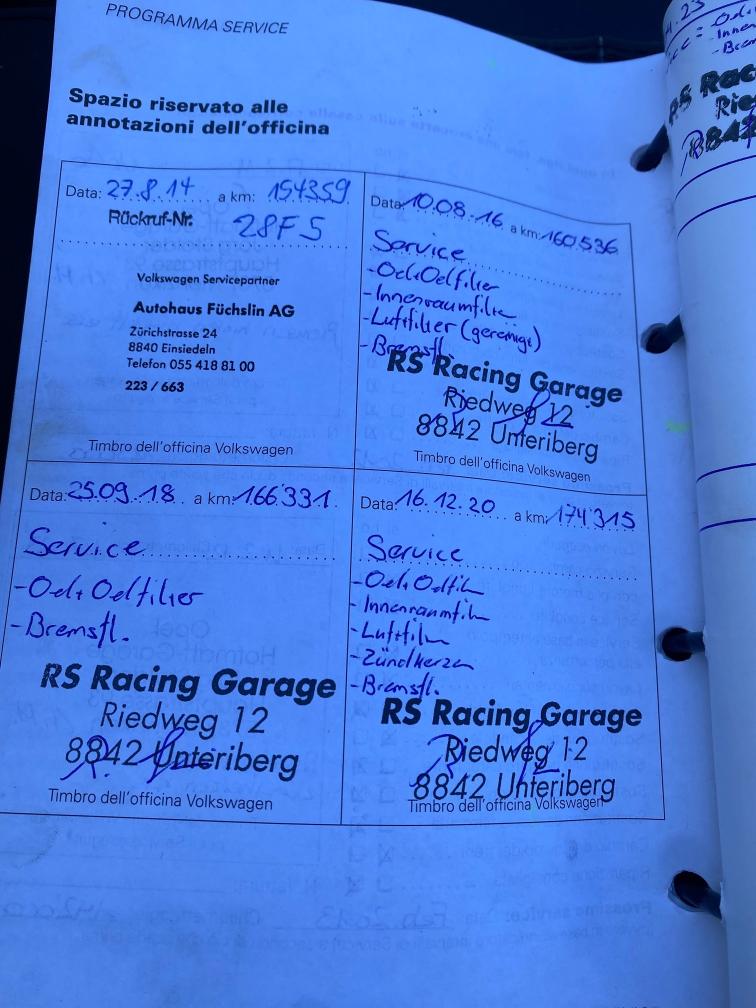 PROGRAMMA SERVICE
Spazio riservato alle
annotazioni dell'officina
Data: 27.8.14 a km: 154359
Rückruf-Nr. 28F5
Volkswagen Servicepartner
Autohaus Füchslin AG
Zürichstrasse 24
8840 Einsiedeln
Telefon 055 418 81 00
223 / 663
Timbro dell'officina Volkswagen
Data: 10.08.16 a km: 160'536
Service
-Oel+Oelfilter
-Innenraumfilter
-Luftfilter (gereinigt)
-Bremsfl.
RS Racing Garage
Riedweg 12
8842 Unteriberg
Timbro dell'officina Volkswagen
Data: 25.09.18 a km: 166'331
Service
-Oel+Oelfilter
-Bremsfl.
RS Racing Garage
Riedweg 12
8842 Unteriberg
Timbro dell'officina Volkswagen
Data: 16.12.20 a km: 174'315
Service
-Oel+Oelfilter
-Innenraumfilter
-Luftfilter
-Zündkerzen
-Bremsfl.
RS Racing Garage
Riedweg 12
8842 Unteriberg
Timbro dell'officina Volkswagen
RS Rac
Rie
8842